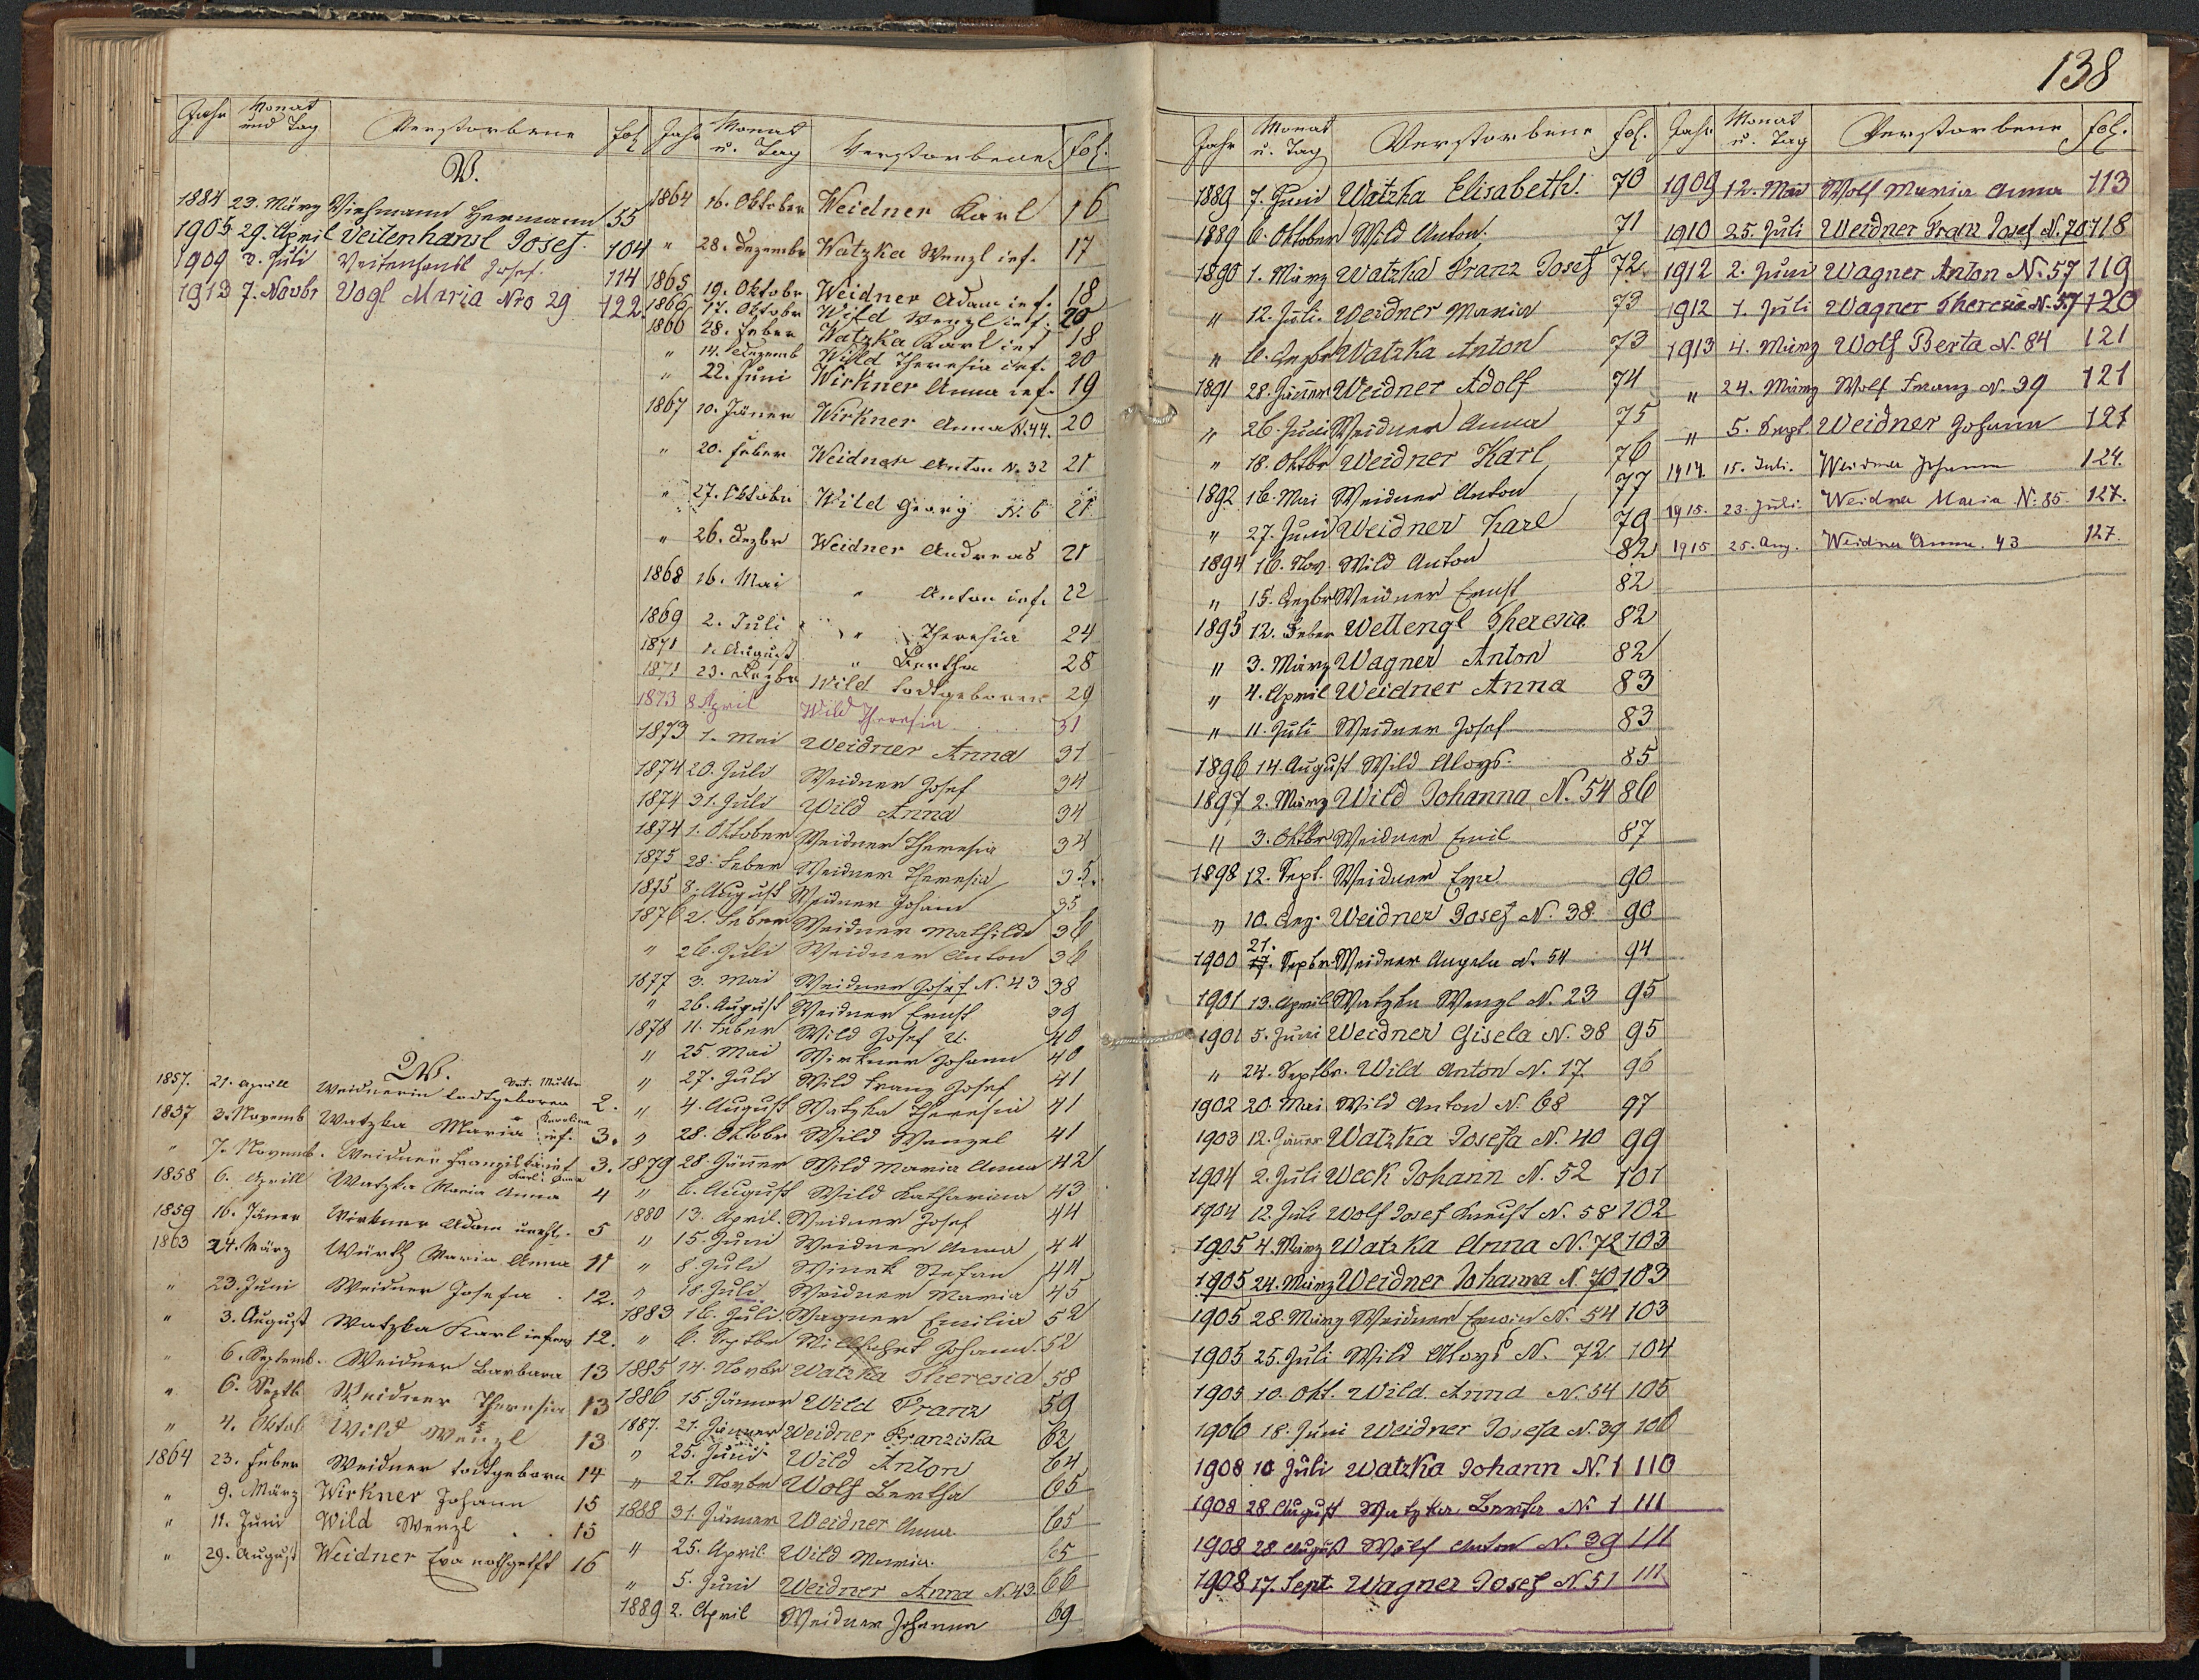 138
Jahr Monat und Tag Verstorbene fol.
V.
1884 23. März Viehmann Hermann 55
1905 29. April Veitenhansl Josef. 104
1909 3. Juli Veitenhansl Josef. 114
1913 7. Novbr Vogl Maria Nro 29 122
W.
1857. 21. Aprill Weidnerin todtgeboren 2.
1857 3. Novemb Watzka Maria inf. 3.
" 7. Novemb. Weidner Franziska inf 3.
1858 6. Aprill Watzka Maria Anna 4
1859 16. Jäner Wirkner Adam 5
1863 24. März Würth Maria Anna 11
" 23. Juni Weidner Josefa 12.
" 3. August Watzka Karl 12.
" 6. Septemb. Weidner Barbara 13
" 6. Septb Weidner Theresia 13
" 4. Oktob Wild Wenzl 13
1864 23. Feber Weidner todtgeboren 14
" 9. März Wirkner Johann 15
" 11. Juni Wild Wenzl 15
" 29. August Weidner Eva nothgetft 16
Jahr Monat u. Tag Verstorbene fol.
1864 16. Oktober Weidner Karl 16
" 28. Dezember Watzka Wenzl inf. 17
1865 19. Oktobr Weidner Adam inf. 18
1866 17. Oktobr Wild Wenzl inf. 20
1866 28. Feber Watzka Karl inf 18
" 14. Dezemb Wild Theresia inf. 20
" 22. Juni Wirkner Anna inf. 19
1867 10. Jäner Wirkner Anna N. 44. 20
" 20. Feber Weidner Anton No 32 21
" 27. Oktobr Wild Georg N. 6 21
" 26. Dezbr Weidner Andreas 21
1868 16. Mai " Anton inf. 22
1869 2. Juli " Theresia 24
1871 1. August " Bertha 28
1871 23. Dezbr Wild todtgeboren 29
1873 8 April Wild Theresia 31
1873 1. Mai Weidner Anna 31
1874 20. Juli Weidner Josef 34
1874 31. Juli Wild Anna 34
1874 1. Oktober Weidner Theresia 34
1875 28. Feber Weidner Theresia 35.
1875 8. August Weidner Johann 35
1876 2. Feber Weidner Mathilde 36
" 26. Juli Weidner Anton 36
1877 3. Mai Weidner Josef N. 43 38
" 26. August Weidner Ernst 39
1878 11. Feber Wild Josef 40
" 25. Mai Wirkner Johann 40
" 27. Juli Wild Franz Josef 41
" 4. August Watzka Theresia 41
" 28. Oktobr Wild Wenzel 41
1879 28. Jänner Wild Maria Anna 42
" 6. August Wild Katharina 43
1880 13. April. Weidner Josef 44
" 15. Juni Weidner Anna 44
" 8. Juli Winek Stefan 44
" 18. Juli Weidner Maria 45
1883 16. Juli. Wagner Emilia 52
" 6. Septbr Willfahrt Johann. 52
1885 14. Novbr Watzka Theresia 58
1886 15. Jänner Wild Franz 59
1887. 21. Jänner Weidner Franziska 62
" 25. Juni Wild Anton 64
" 21. Novbr Wolf Bertha 65
1888 31. Jänner Weidner Anna. 65
" 25. April Wild Maria. 65
" 5. Juni Weidner Anna N. 43. 66
1889 2. April Weidner Johanna 69
Jahr Monat u. Tag Verstorbene fol.
1889 7. Juni Watzka Elisabeth. 70
1889 6. Oktober Wild Anton. 71
1890 1. März Watzka Franz Josef 72.
" 12. Juli. Weidner Maria 73
" 6. Dezbr Watzka Anton 73
1891 28. Jänner Weidner Adolf 74
" 26. Juni Weidner Anna 75
" 18. Oktbr Weidner Karl 76
1892 16. Mai Weidner Anton 77
" 27. Juni Weidner Karl 79
1894 16. Nov. Wild Anton 82
" 15. Dezbr Weidner Ernst 82
1895 12. Feber Wettengl Theresia. 82
" 3. März Wagner Anton 82
" 4. April Weidner Anna 83
" 11. Juli Weidner Josef 83
1896 14. August Wild Aloys. 85
1897 2. März Wild Johanna N. 54 86
" 3. Oktbr Weidner Emil 87
1898 12. Sept. Weidner Eva 90
" 10. Dez. Weidner Josef N. 38. 90
1900 21. 17. Septbr. Weidner Angela N. 54 94
1901 13. April Watzka Wenzl N. 23 95
1901 5. Juni Weidner Gisela N. 38 95
" 24. Septbr. Wild Anton N. 17 96
1902 20. Mai Wild Anton N. 68 97
1903 12. Jänner Watzka Josefa N. 40 99
1904 2. Juli Weck Johann N. 52 101
1904 12. Juli Wolf Josef Ernest N. 58 102
1905 4. März Watzka Anna N. 72 103
1905 24. März Weidner Johanna N. 70 103
1905 28. März Weidner Erwin N. 54 103
1905 25. Juli Wild Aloys N. 72 104
1905 10. Okt. Wild. Anna N. 54 105
1906 18. Juni Weidner Josefa N. 39 106
1908 10 Juli Watzka Johann N. 1 110
1908 28 August Watzka Berta N. 1 111
1908 28. August Wolf Anton N. 39 111
1908 17. Sept. Wagner Josef N 51 111
Jahr Monat u. Tag Verstorbene fol.
1909 12. Mai Wolf Maria Anna 113
1910 25. Juli Weidner Franz Josef N. 70 118
1912 2. Juni Wagner Anton N. 57 119
1912 1. Juli Wagner Theresia N. 57 120
1913 4. März Wolf Berta N. 84 121
" 24. März Wolf Franz N. 39 121
" 5. Sept. Weidner Johann 121
1914 15. Juli. Weidner Johann 124.
1915. 23. Juli. Weidner Maria N. 85. 127.
1915 25. Aug. Weidner Anna. 43 127.